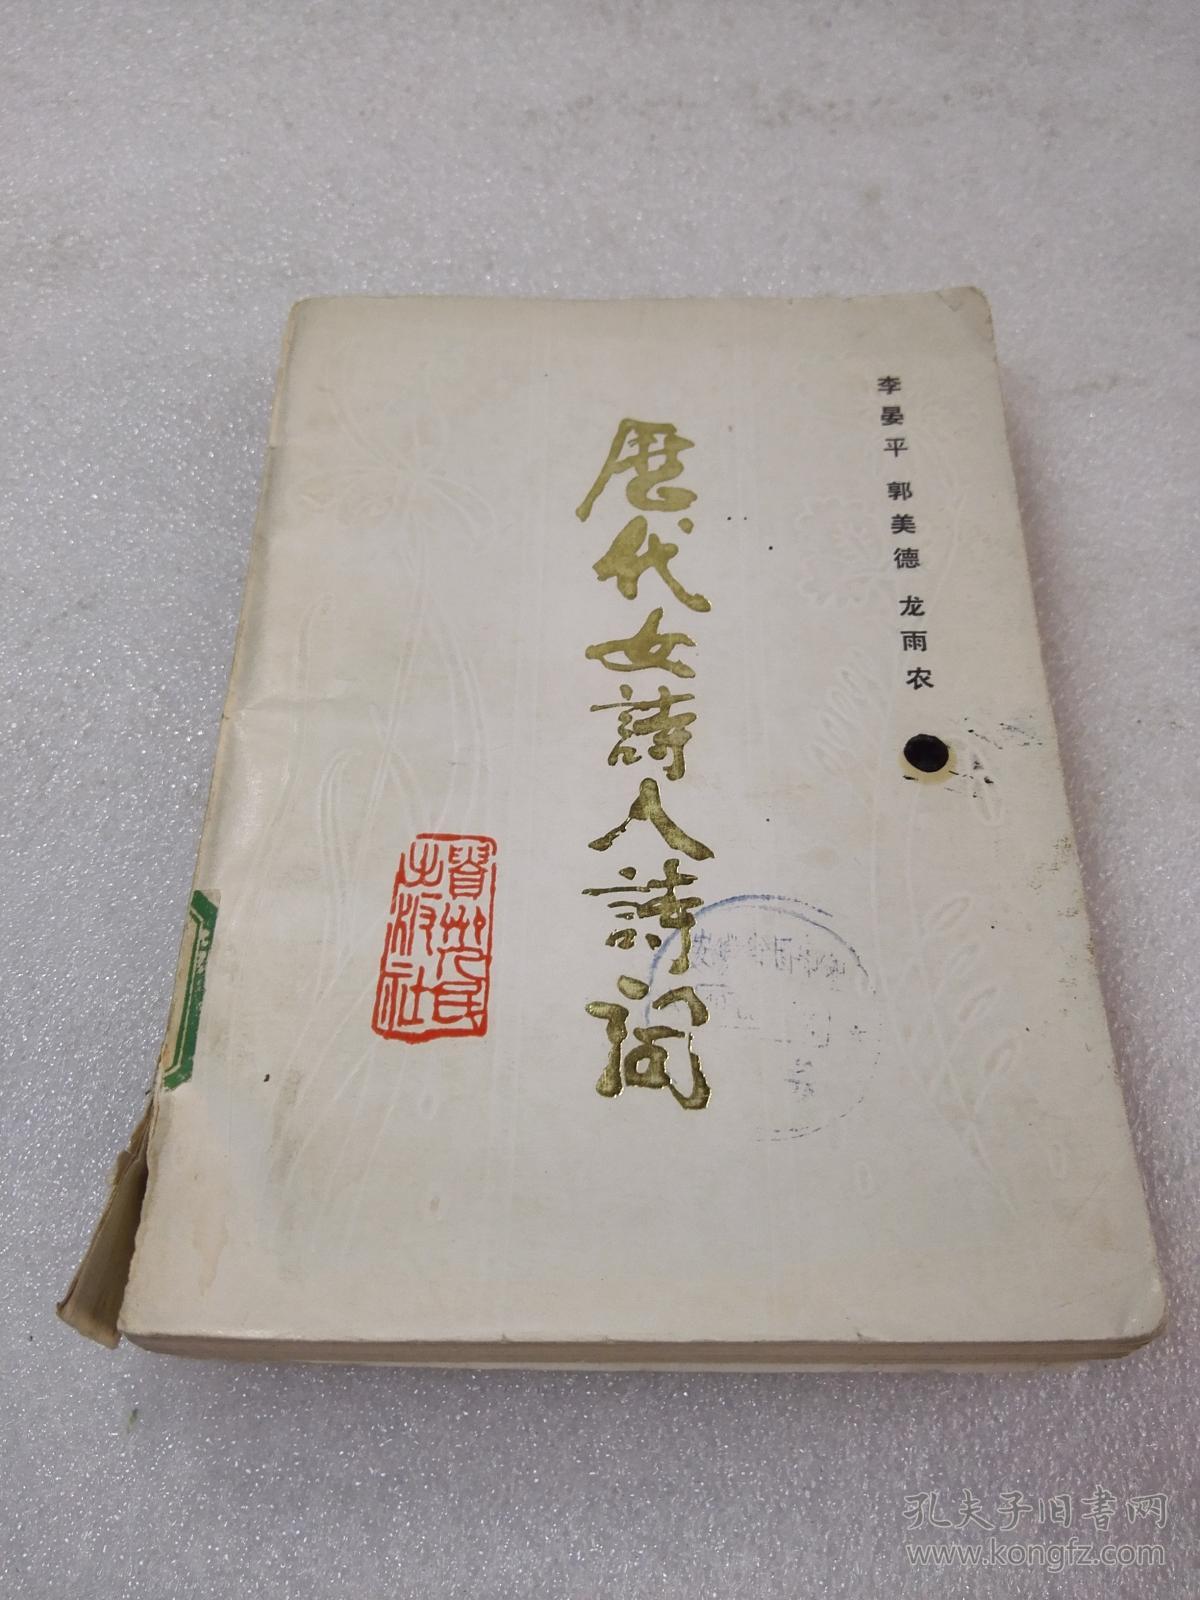 李晏平 郭美德 龙雨农
历代女詩人詩词
貴州人民
出版社
孔夫子旧书网
www.kongfz.com